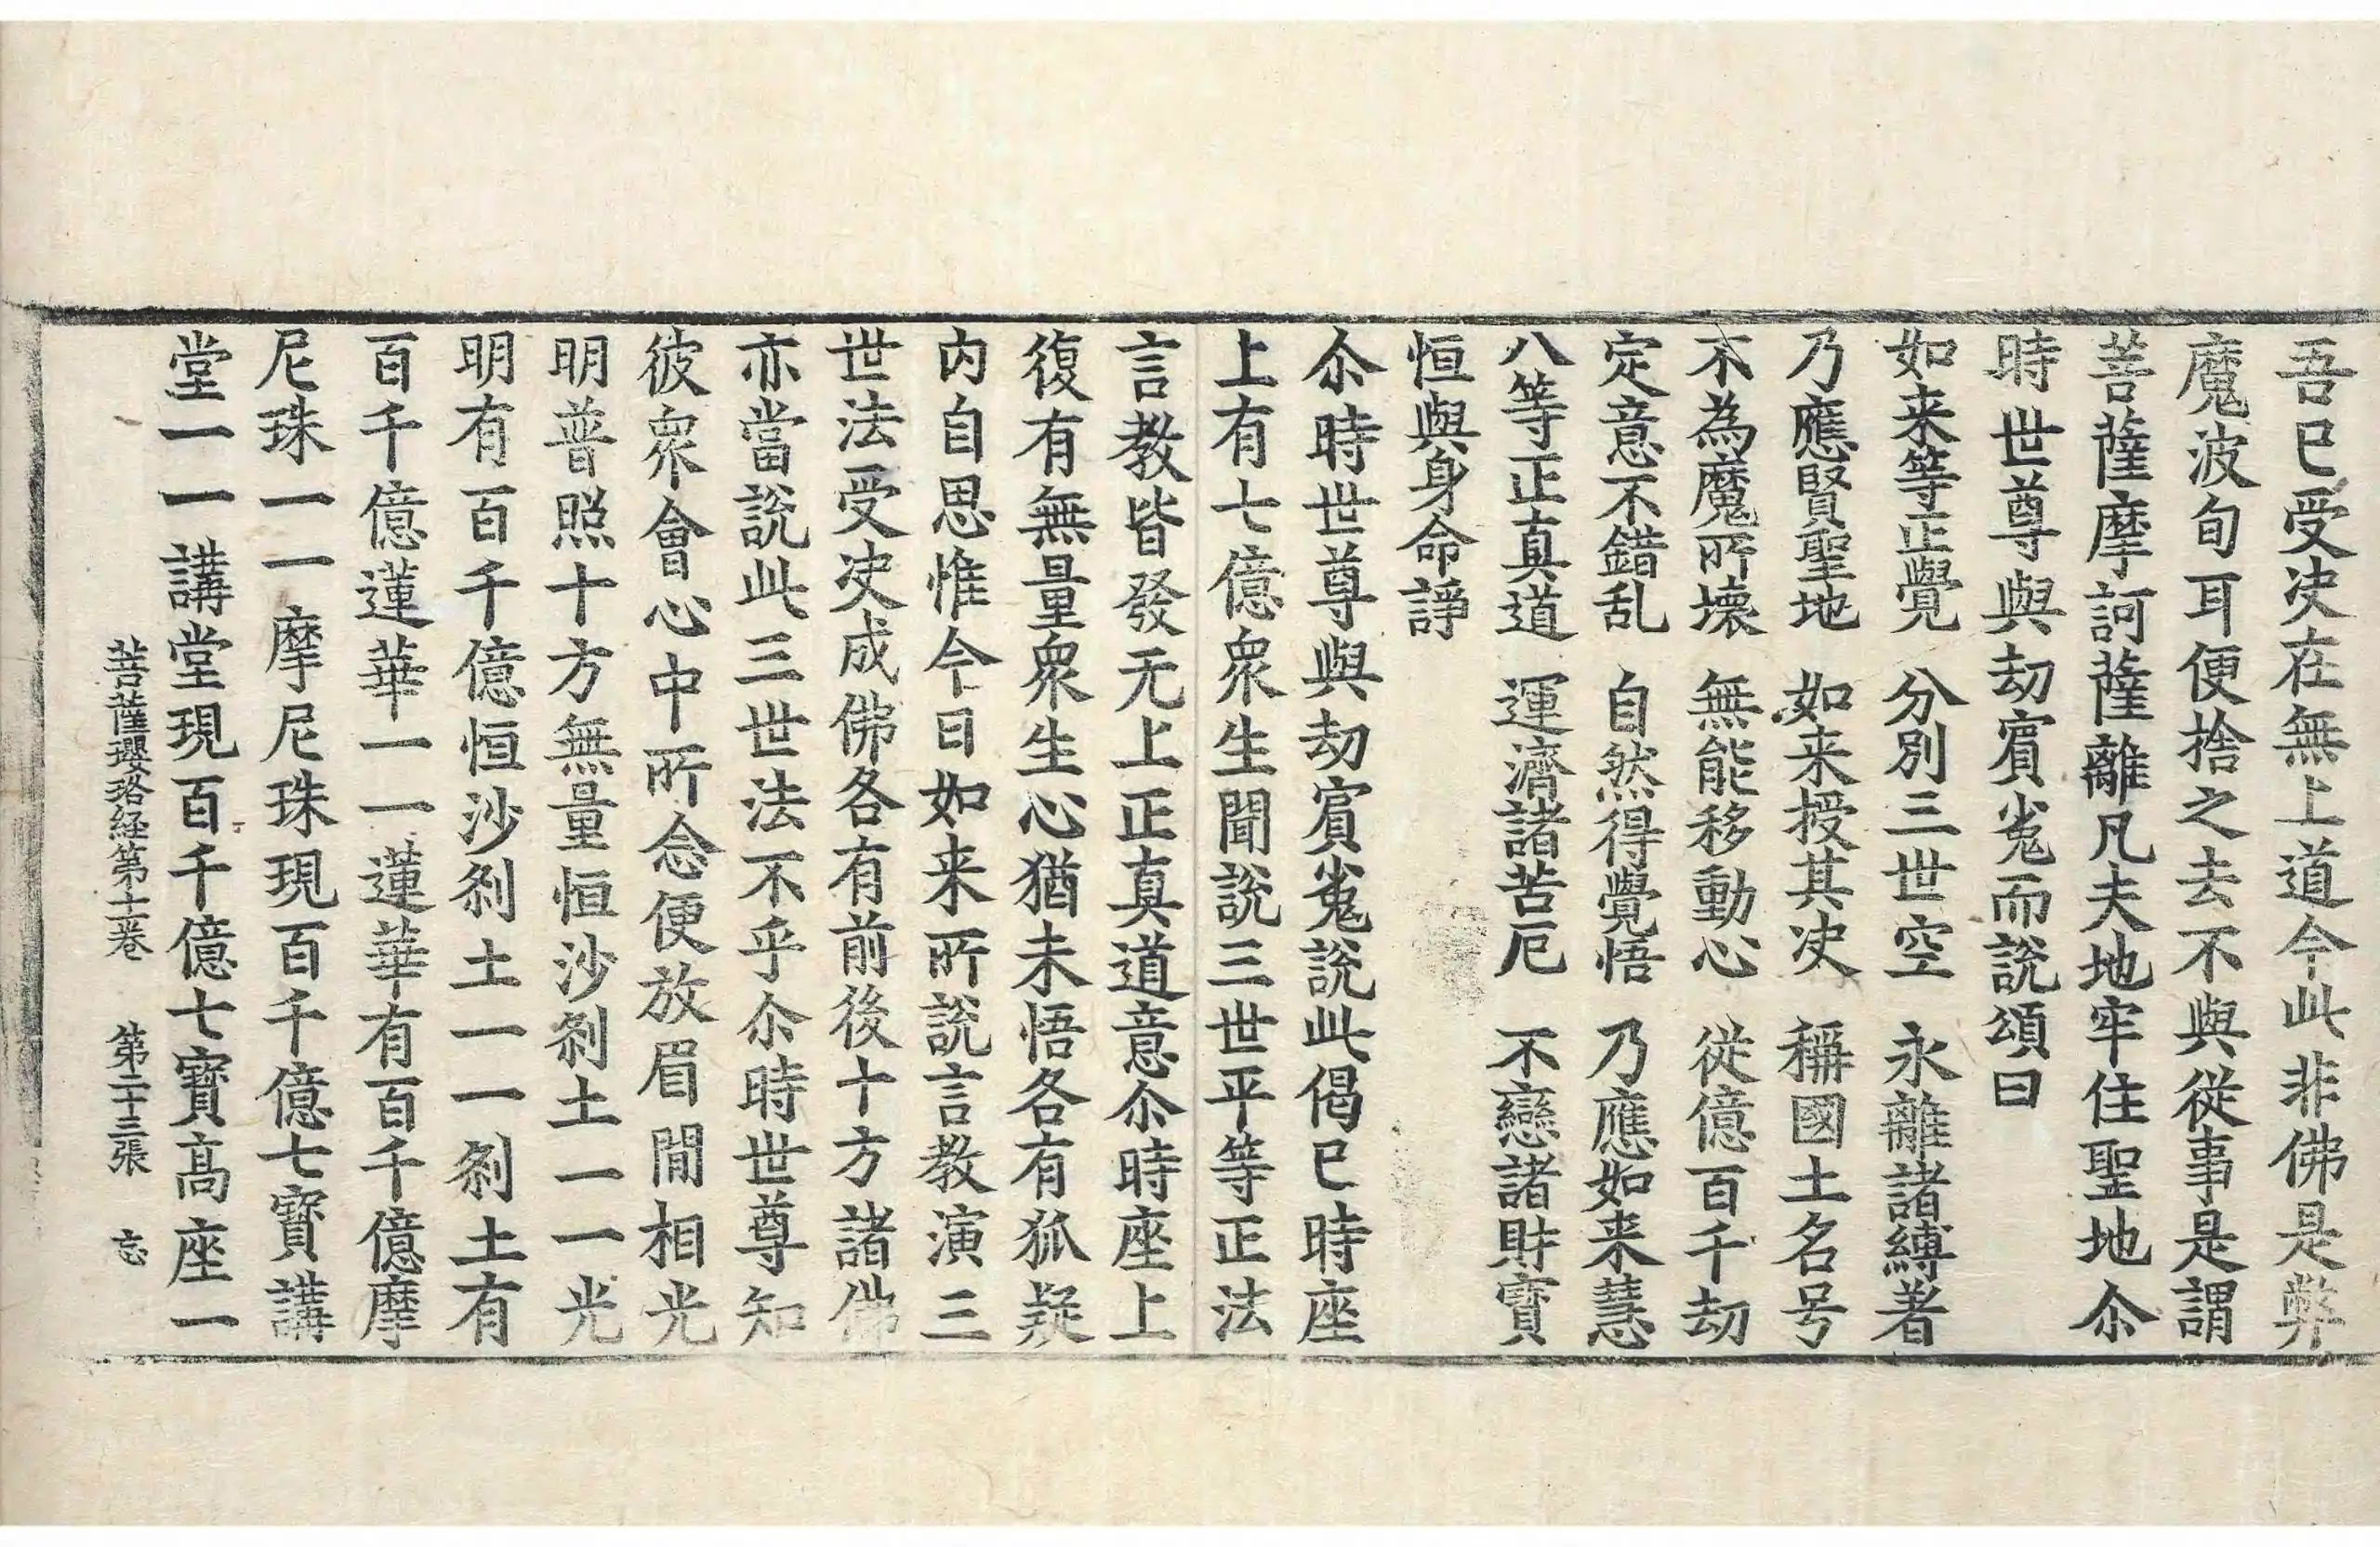 吾已受决在無上道今此非佛是弊
魔波旬耳便捨之去不與從事是謂
菩薩摩訶薩離凡夫地牢住聖地尒
時世尊與劫賔㝹而說頌曰
如来等正覺　分別三世空　永離諸縛著
乃應賢聖地　如来授其决　稱國土名号
不為魔所壞　無能移動心　從億百千劫
定意不錯乱　自然得覺悟　乃應如来慧
八等正真道　運濟諸苦厄　不戀諸財寶
恒與身命諍
尒時世尊與劫賔㝹說此偈已時座
上有七億衆生聞說三世平等正法
言教皆發无上正真道意尒時座上
復有無量衆生心猶未悟各有狐疑
内自思惟今日如来所說言教演三
世法受决成佛各有前後十方諸佛
亦當說此三世法不乎尒時世尊知
彼衆會心中所念便放眉間相光
明普照十方無量恒沙刹土一一光
明有百千億恒沙刹土一一刹土有
百千億蓮華一一蓮華有百千億摩
尼珠一一摩尼珠現百千億七寶講
堂一一講堂現百千億七寶高座一
菩薩瓔珞経第十二卷　第二十三張　忘